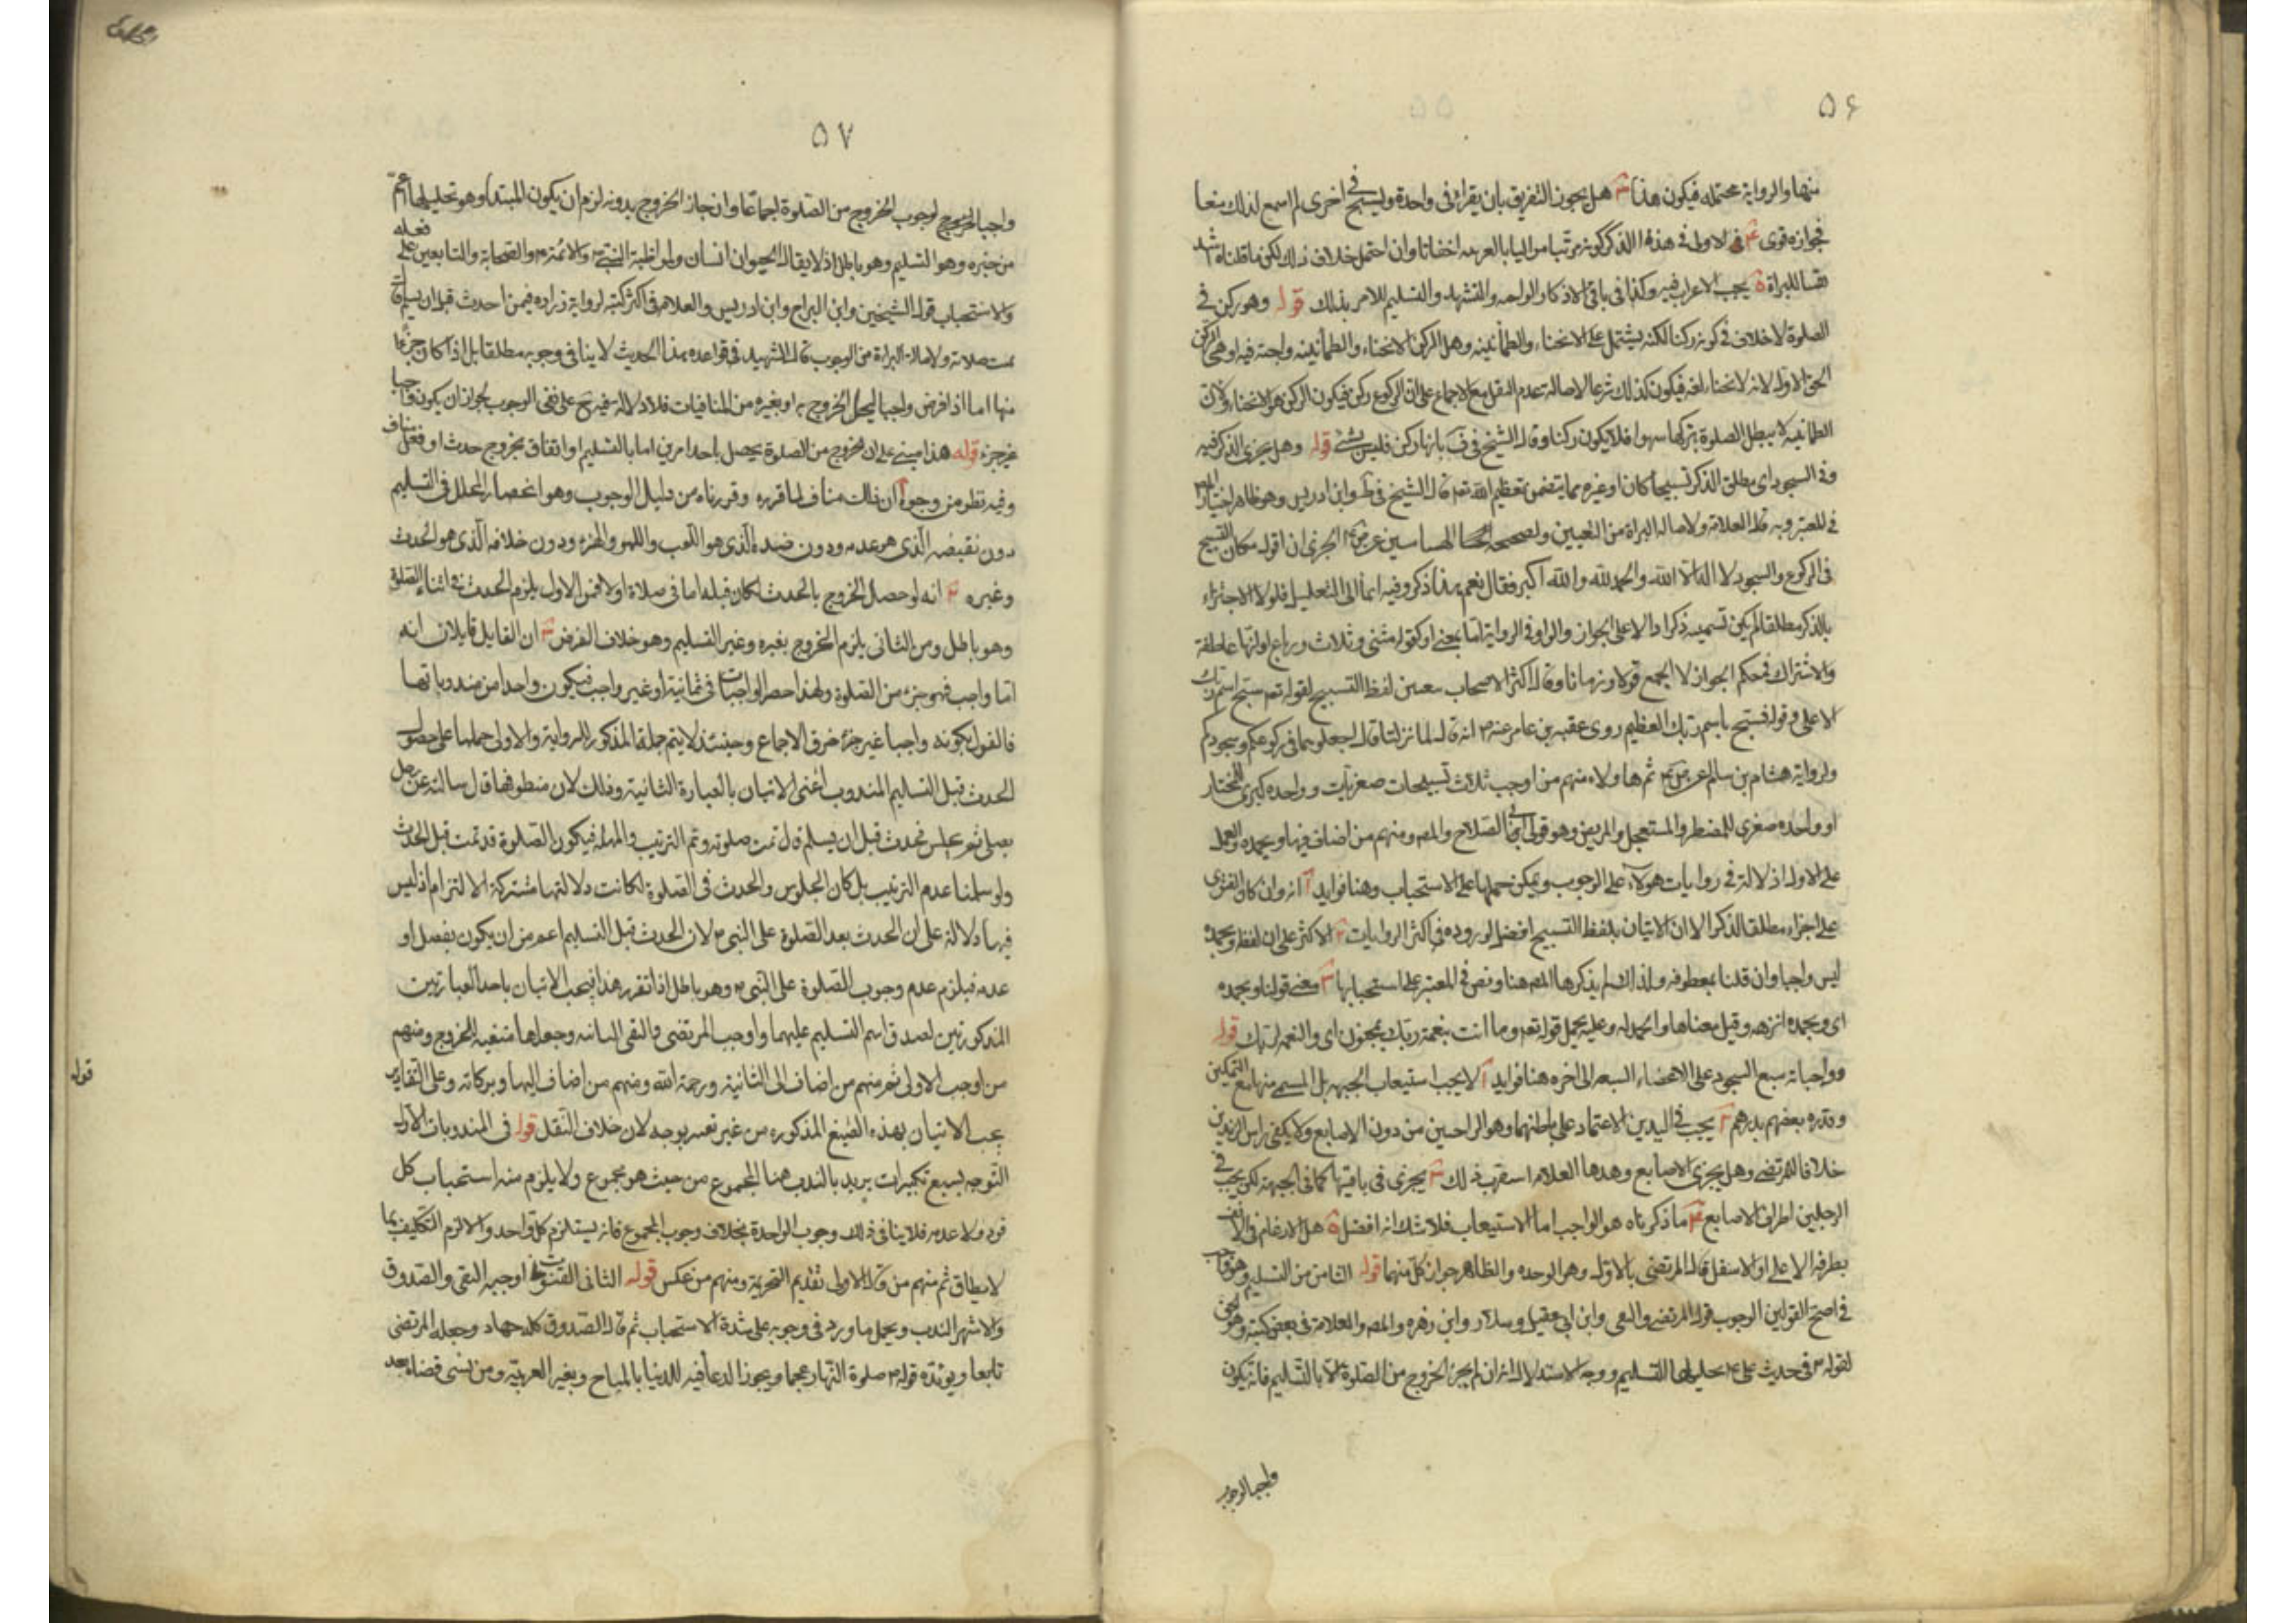 ٥۶
منها والرواية محتمله فيكون هذا ٣ هل يجوز التفريق بان يقراء فى واحدة ويسبح فى اخرى لم اسمع لذلك منعا
فجوازه قوى ۴ الاولى فى هذه الذكر كونه مرتبا بالعربيه اخفاتا وان احتمل خلاف ذلك لكن ما قلناه اشهد
للبراة ٥ يجب الاعراب فيه وكذا فى باقى الاذكار الواجبه والتشهد والتسليم للامر بذلك قوله وهو ركن فى
الصلوة لا خلاف فى كونه ركنا لكنه يشتمل على الانحناء والطمأنينه وهل الركن الانحناء والطمأنينه واجبة فيه او هى الركن
الحق الاول لانه الانحناء لغه فيكون كذلك شرعا لاصالة عدم النقل مع الاجماع على ان الركوع ركن فيكون الركن هو الانحناء ولان
الطمانينه لا يبطل الصلوة بتركها سهوا فلا يكون ركنا وقال الشيخ فى ف بانها ركن فليس بشئ قوله وهل يجزى الذكر فيه
وفى السجود اى مطلق الذكر تسبيحا كان او غيره مما يتضمن تعظيم الله تعه قال الشيخ فى ط وابن ادريس وهو ظاهر اختيار المصه
فى المعتبر وبه قال العلامة ولاصاله البراة من التعيين ولصحيحه الهشامين عن ص ع ايجزى ان اقول مكان التسبيح
فى الركوع والسجود لا اله الا الله والحمد لله والله اكبر فقال نعم هذا ذكر وفيه ايماء الى التعليل فلولا الاجتزاء
بالذكر مطلقا لم يكن تسميته ذكرا دالا على الجواز والواو فى الرواية اما بمعنى او كقوله مثنى وثلاث ورباع او انها عاطفة
والاشتراك فى حكم الجواز لا الجمع قولا وزمانا وقال اكثر الاصحاب بتعيين لفظ التسبيح لقوله تعه سبح اسم ربك
الاعلى وقوله فسبح باسم ربك العظيم روى عقبه بن عامر عنه ص انه قال لما نزلتا قال اجعلوهما فى ركوعكم وسجودكم
ولرواية هشام بن سالم عن ص ع ثم هاولاء منهم من اوجب ثلاث تسبيحات صغريات وواحده كبرى للمختار
او واحده صغرى للمضطر والمستعجل والمريض وهو قول ابى الصلاح والمصه ومنهم من اضاف فيها وبحمده والعمل
على الاول اذ لا دلالة فى روايات هولاء على الوجوب ويمكن حملها على الاستحباب وهنا فوايد ١ انه وان كان الفتوى
على اجزاء مطلق الذكر الا ان الاتيان بلفظ التسبيح افضل لوروده فى اكثر الروايات ٢ الاكثر على ان لفظ وبحمده
ليس واجبا وان قلنا بمعطوفه ولذلك لم يذكرها المصه هنا ونص فى المعتبر على استحبابها ٣ معنى قولنا وبحمده
اى وبحمده انزهه وقيل معناها والحمد له وعليه يحمل قوله تعه وما انت بنعمة ربك بمجنون اى والنعمه لربك قوله
وواجباته سبع السجود على الاعضاء السبعه الى اخره هنا فوايد ١ لا يجب استيعاب الجبهه بل المسمى منها مع التمكين
وقدره بعضهم بدرهم ٢ يجب فى اليدين الاعتماد على باطنهما وهو الراحتين من دون الاصابع ولا يكفى راس الزندين
خلافا للمرتضى وهل يجزى الاصابع وحدها العلامه استقرب ذلك ٣ يجزى فى باقيها كما فى الجبهه لكن يجب فى
الرجلين اطراف الاصابع ۴ ما ذكرناه هو الواجب اما الاستيعاب فلا شك انه افضل ٥ هل الارغام فى الانف
بطرفه الاعلى او الاسفل قال المرتضى بالاول وهو الوحده والظاهر جواز كل منهما قوله الثامن من التسليم وهو واجب
فى اصح القولين الوجوب قول المرتضى والتقى وابن ابى عقيل وسلار وابن زهره والمصه والعلامة فى بعض كتبه وهو الحق
لقوله ص فى حديث على ع تحليلها التسليم ووجه الاستدلال انه ان لم يجز الخروج من الصلوة الا بالتسليم فانه يكون
واجبا لوجوب
٥٧
واجبا لوجوب الخروج من الصلوة اجماعا وان جاز الخروج بدونه لزم ان يكون المبتدا وهو تحليلها اعم
من خبره وهو التسليم وهو باطل اذ لا يقال الحيوان انسان ولمواظبة النبى ص والائمة ع والصحابة والتابعين على فعله
والاستحباب قول الشيخين وابن البراج وابن ادريس والعلامه فى اكثر كتبه لرواية زراره فيمن احدث قبل ان يسلم قال
تمت صلاته ولاصالة البراءة من الوجوب قال الشهيد فى قواعده هذا الحديث لا ينافى وجوبه مطلقا بل اذا كان جزءا
منها اما اذا فرض واجبا ليحل الخروج به او بغيره من المنافيات فلا دلالة فيه ح على نفى الوجوب لجواز ان يكون واجبا
غير جزء قوله هذا مبنى على ان الخروج من الصلوة يحصل باحد امرين اما بالتسليم او اتفاق بخروج حدث او فعل مناف
وفيه نظر من وجوه ١ ان ذلك مناف لما قرره وقررناه من دليل الوجوب وهو انحصار المحلل فى التسليم
دون نقيضه الذى هو عدمه ودون ضده الذى هو اللعب واللهو والهزء ودون خلافه الذى هو الحدث
وغيره ٢ انه لو حصل الخروج بالحدث لكان قبله اما فى صلاة اولا فمن الاول يلزم الحدث فى اثناء الصلوة
وهو باطل ومن الثانى يلزم الخروج بغيره وغير التسليم وهو خلاف الفرض ٣ ان القايل قايلان انه
اما واجب فهو جزء من الصلوة ولهذا حصر الواجبات فى ثمانية او غير واجب فيكون واحدا من مندوباتها
فالقول بكونه واجبا غير جزء خرق الاجماع وحينئذ لا يتم حمله المذكور للرواية والاولى حملها على حصول
الحدث قبل التسليم المندوب اعنى الاتيان بالعبارة الثانية وذلك لان منطوقها قال سالته عن رجل
يصلى ثم يجلس فيحدث قبل ان يسلم قال تمت صلوته وثم للترتيب والمهله فيكون الصلوة قد تمت قبل الحدث
ولو سلمنا عدم الترتيب بل كان الجلوس والحدث فى الصلوة لكانت دلالتها مشتركة الالتزام اذ ليس
فيها دلالة على ان الحدث بعد الصلوة على النبى ص لان الحدث قبل التسليم اعم من ان يكون بفصل او
عدمه فيلزم عدم وجوب الصلوة على النبى ص وهو باطل اذا تقرر هذا فيجب الاتيان باحد العبارتين
المذكورتين لصدق اسم التسليم عليهما واوجب المرتضى والتقى الثانيه وجعلاها متعينه للخروج ومنهم
من اوجب الاولى ثم منهم من اضاف الى الثانية ورحمة الله ومنهم من اضاف اليها وبركاته وعلى التقادير
يجب الاتيان بهذه الصيغ المذكوره من غير تغيير بوجه لانه خلاف النقل قوله فى المندوبات الاول
التوجه بسبع تكبيرات يريد بالندب هنا المجموع من حيث هو مجموع ولا يلزم منه استحباب كل
فرد ولا عدمه فلا ينافى ذلك وجوب الواحدة بخلاف وجوب المجموع فانه يستلزم كل واحد والا لزم التكليف بما
لا يطاق ثم منهم من قال الاولى تقديم التحريمة ومنهم من عكس قوله الثانى القنوت اوجبه التقى والصدوق
والاشهر الندب ويحمل ما ورد فى وجوبه على شدة الاستحباب ثم قال الصدوق كله جهار وجعله المرتضى
تابعا ويؤيده قوله ص صلوة النهار عجما ويجوز الدعا فيه للدنيا بالمباح وبغير العربية ومن نسى قضاه بعد
قوله